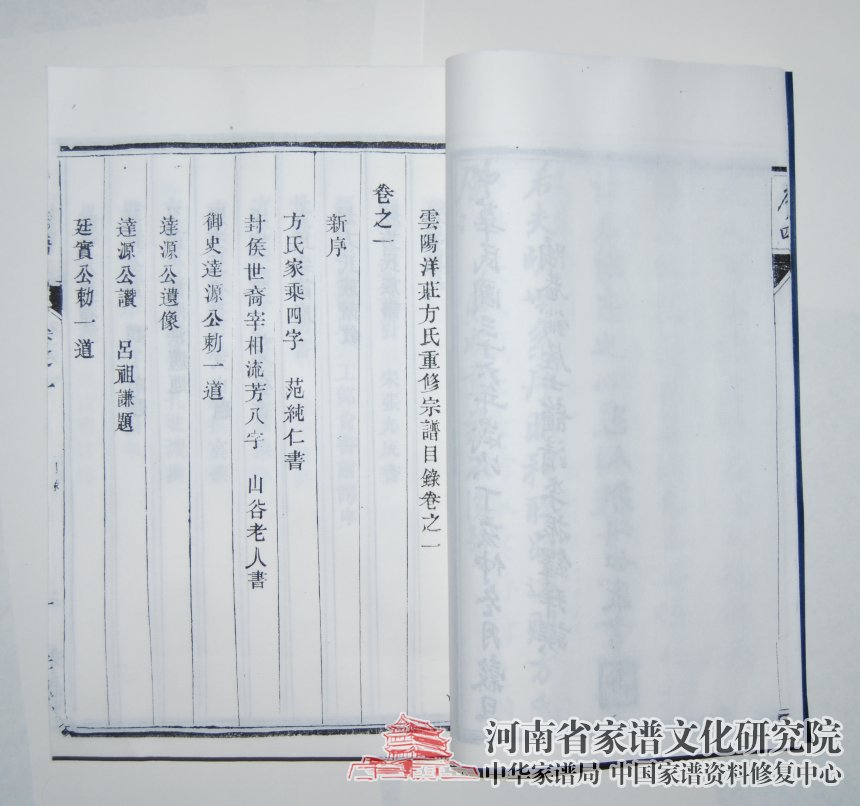 雲陽洋莊方氏重修宗譜目錄卷之一
卷之一
新序
方氏家乘四字 范純仁書
封侯世裔宰相流芳八字 山谷老人書
御史達源公勅一道
達源公遺像
達源公讚 呂祖謙題
廷實公勅一道
河南省家谱文化研究院
中华家谱局 中国家谱资料修复中心